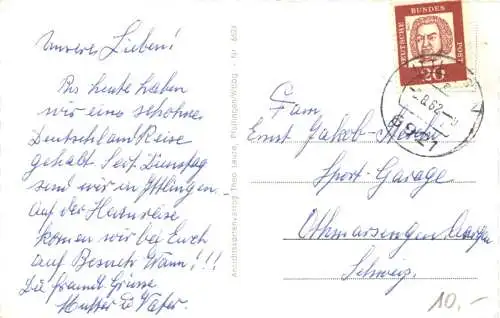 Unsere Lieben!
Bis heute haben
wir eine schöne
Deutschland Reise
gehabt Seit Dienstag
send wir in Ittlingen
Auf der Heimreise
komen wir bei Euch
auf Besuch Wann!!!
Die freundl. Grüsse
Mutter & Vater.
Ansichtskartenverlag Theo Lauze, Pfullingen/Wttbg - Nr 6521
DEUTSCHE BUNDES POST
20
8.62
Fam.
Ernst Jakob-
Sport-Garage
Othmarsingen
Schweiz.
10.-